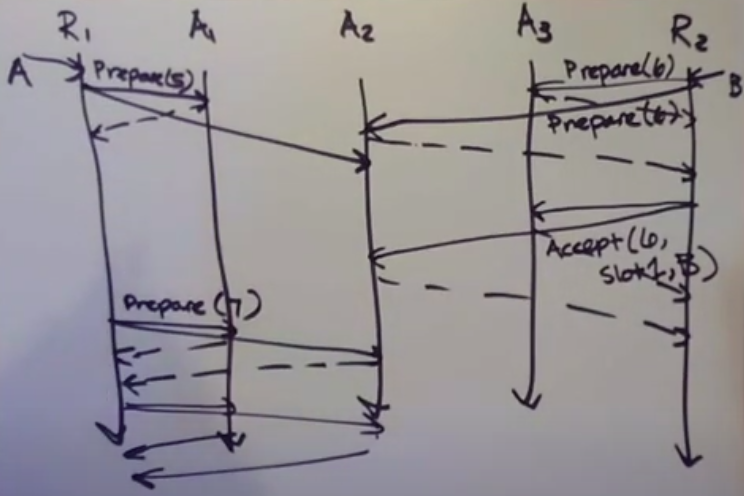 R₁ A₁ A₂ A₃ R₂
A Prepare(5) Prepare(6) B
Prepare(6)
Accept(6,
Slot1, B)
Prepare(7)